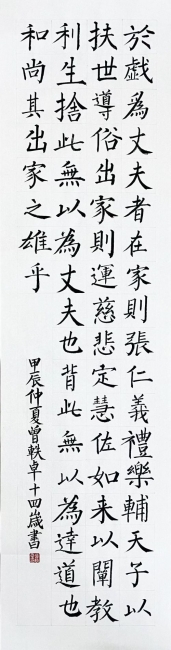 於戲為丈夫者在家則張仁義禮樂輔天子以
扶世導俗出家則運慈悲定慧佐如来以闡教
利生捨此無以為丈夫也背此無以為達道也
和尚其出家之雄乎
甲辰仲夏曾軼卓十四歲書